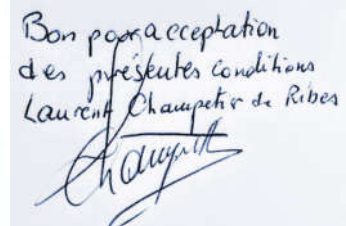 Bon pour acceptation
des présentes conditions
Laurent Champetier de Ribes